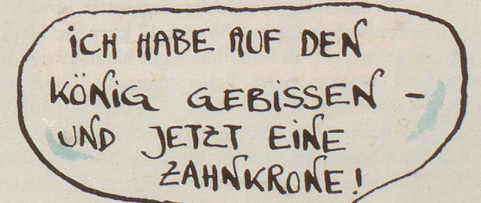 ICH HABE AUF DEN
KÖNIG GEBISSEN –
UND JETZT EINE
ZAHNKRONE!